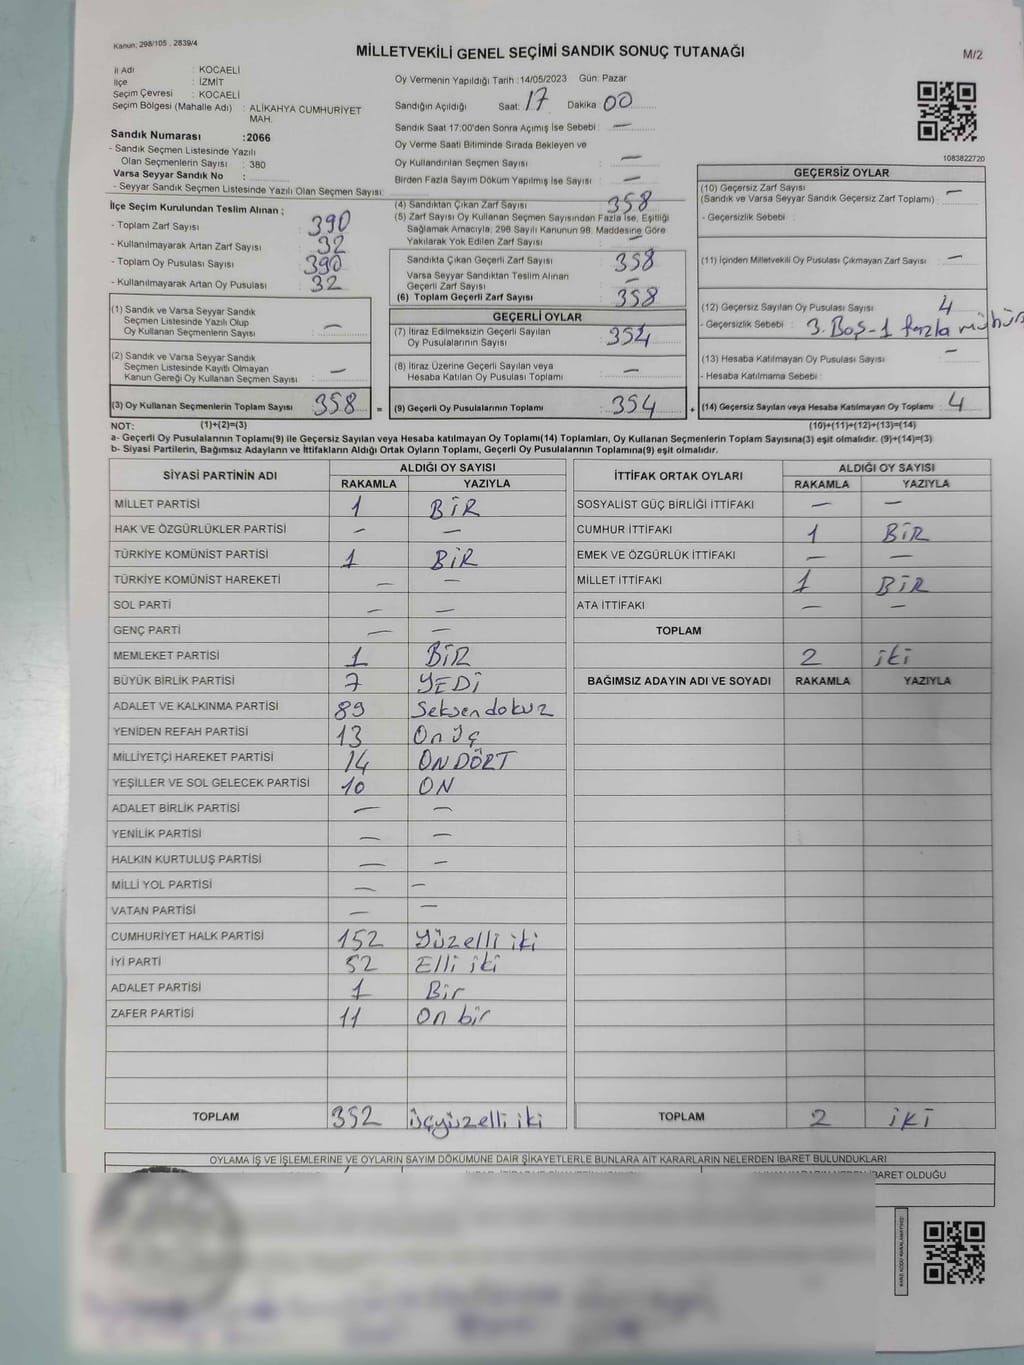 Kanun; 298/105 , 2839/4
MİLLETVEKİLİ GENEL SEÇİMİ SANDIK SONUÇ TUTANAĞI
M/2
İl Adı : KOCAELİ
İlçe : İZMİT
Seçim Çevresi : KOCAELİ
Seçim Bölgesi (Mahalle Adı) : ALİKAHYA CUMHURİYET
MAH.
Sandık Numarası :2066
- Sandık Seçmen Listesinde Yazılı
Olan Seçmenlerin Sayısı : 380
Varsa Seyyar Sandık No :
- Seyyar Sandık Seçmen Listesinde Yazılı Olan Seçmen Sayısı:
İlçe Seçim Kurulundan Teslim Alınan ;
- Toplam Zarf Sayısı : 390
- Kullanılmayarak Artan Zarf Sayısı : 32
- Toplam Oy Pusulası Sayısı : 390
- Kullanılmayarak Artan Oy Pusulası : 32
(1) Sandık ve Varsa Seyyar Sandık
Seçmen Listesinde Yazılı Olup
Oy Kullanan Seçmenlerin Sayısı : —
(2) Sandık ve Varsa Seyyar Sandık
Seçmen Listesinde Kayıtlı Olmayan
Kanun Gereği Oy Kullanan Seçmen Sayısı : —
(3) Oy Kullanan Seçmenlerin Toplam Sayısı : 358 =
Oy Vermenin Yapıldığı Tarih :14/05/2023 Gün: Pazar
Sandığın Açıldığı Saat: 17 Dakika : 00
Sandık Saat 17:00'den Sonra Açımış İse Sebebi : —
Oy Verme Saati Bitiminde Sırada Bekleyen ve
Oy Kullandırılan Seçmen Sayısı : —
Birden Fazla Sayım Döküm Yapılmış İse Sayısı : —
(4) Sandıktan Çıkan Zarf Sayısı : 358
(5) Zarf Sayısı Oy Kullanan Seçmen Sayısından Fazla İse, Eşitliği
Sağlamak Amacıyla, 298 Sayılı Kanunun 98. Maddesine Göre
Yakılarak Yok Edilen Zarf Sayısı : —
Sandıkta Çıkan Geçerli Zarf Sayısı : 358
Varsa Seyyar Sandıktan Teslim Alınan
Geçerli Zarf Sayısı : —
(6) Toplam Geçerli Zarf Sayısı : 358
GEÇERLİ OYLAR
(7) İtiraz Edilmeksizin Geçerli Sayılan
Oy Pusulalarının Sayısı : 354
(8) İtiraz Üzerine Geçerli Sayılan veya
Hesaba Katılan Oy Pusulası Toplamı : —
(9) Geçerli Oy Pusulalarının Toplamı : 354 +
1083822720
GEÇERSİZ OYLAR
(10) Geçersiz Zarf Sayısı —
(Sandık ve Varsa Seyyar Sandık Geçersiz Zarf Toplamı) :
- Geçersizlik Sebebi :
(11) İçinden Milletvekili Oy Pusulası Çıkmayan Zarf Sayısı : —
(12) Geçersiz Sayılan Oy Pusulası Sayısı : 4
- Geçersizlik Sebebi : 3. Boş - 1 fazla mühür
(13) Hesaba Katılmayan Oy Pusulası Sayısı : —
- Hesaba Katılmama Sebebi :
(14) Geçersiz Sayılan veya Hesaba Katılmayan Oy Toplamı : 4
NOT: (1)+(2)=(3) (10)+(11)+(12)+(13)=(14)
a- Geçerli Oy Pusulalarının Toplamı(9) ile Geçersiz Sayılan veya Hesaba katılmayan Oy Toplamı(14) Toplamları, Oy Kullanan Seçmenlerin Toplam Sayısına(3) eşit olmalıdır. (9)+(14)=(3)
b- Siyasi Partilerin, Bağımsız Adayların ve İttifakların Aldığı Ortak Oyların Toplamı, Geçerli Oy Pusulalarının Toplamına(9) eşit olmalıdır.
SİYASİ PARTİNİN ADI ALDIĞI OY SAYISI
RAKAMLA YAZIYLA
MİLLET PARTİSİ 1 BİR
HAK VE ÖZGÜRLÜKLER PARTİSİ — —
TÜRKİYE KOMÜNİST PARTİSİ 1 BİR
TÜRKİYE KOMÜNİST HAREKETİ — —
SOL PARTİ — —
GENÇ PARTİ — —
MEMLEKET PARTİSİ 1 BİR
BÜYÜK BİRLİK PARTİSİ 7 YEDİ
ADALET VE KALKINMA PARTİSİ 89 Seksen dokuz
YENİDEN REFAH PARTİSİ 13 On üç
MİLLİYETÇİ HAREKET PARTİSİ 14 ON DÖRT
YEŞİLLER VE SOL GELECEK PARTİSİ 10 ON
ADALET BİRLİK PARTİSİ — —
YENİLİK PARTİSİ — —
HALKIN KURTULUŞ PARTİSİ — —
MİLLİ YOL PARTİSİ — —
VATAN PARTİSİ — —
CUMHURİYET HALK PARTİSİ 152 Yüzelli iki
İYİ PARTİ 52 Elli iki
ADALET PARTİSİ 1 Bir
ZAFER PARTİSİ 11 On bir
TOPLAM 352 üçyüzelli iki
İTTİFAK ORTAK OYLARI ALDIĞI OY SAYISI
RAKAMLA YAZIYLA
SOSYALİST GÜÇ BİRLİĞİ İTTİFAKI — —
CUMHUR İTTİFAKI 1 BİR
EMEK VE ÖZGÜRLÜK İTTİFAKI — —
MİLLET İTTİFAKI 1 BİR
ATA İTTİFAKI — —
TOPLAM
2 iki
BAĞIMSIZ ADAYIN ADI VE SOYADI RAKAMLA YAZIYLA
TOPLAM 2 iKİ
OYLAMA İŞ VE İŞLEMLERİNE VE OYLARIN SAYIM DÖKÜMÜNE DAİR ŞİKAYETLERLE BUNLARA AİT KARARLARIN NELERDEN İBARET BULUNDUKLARI
BARET OLDUĞU